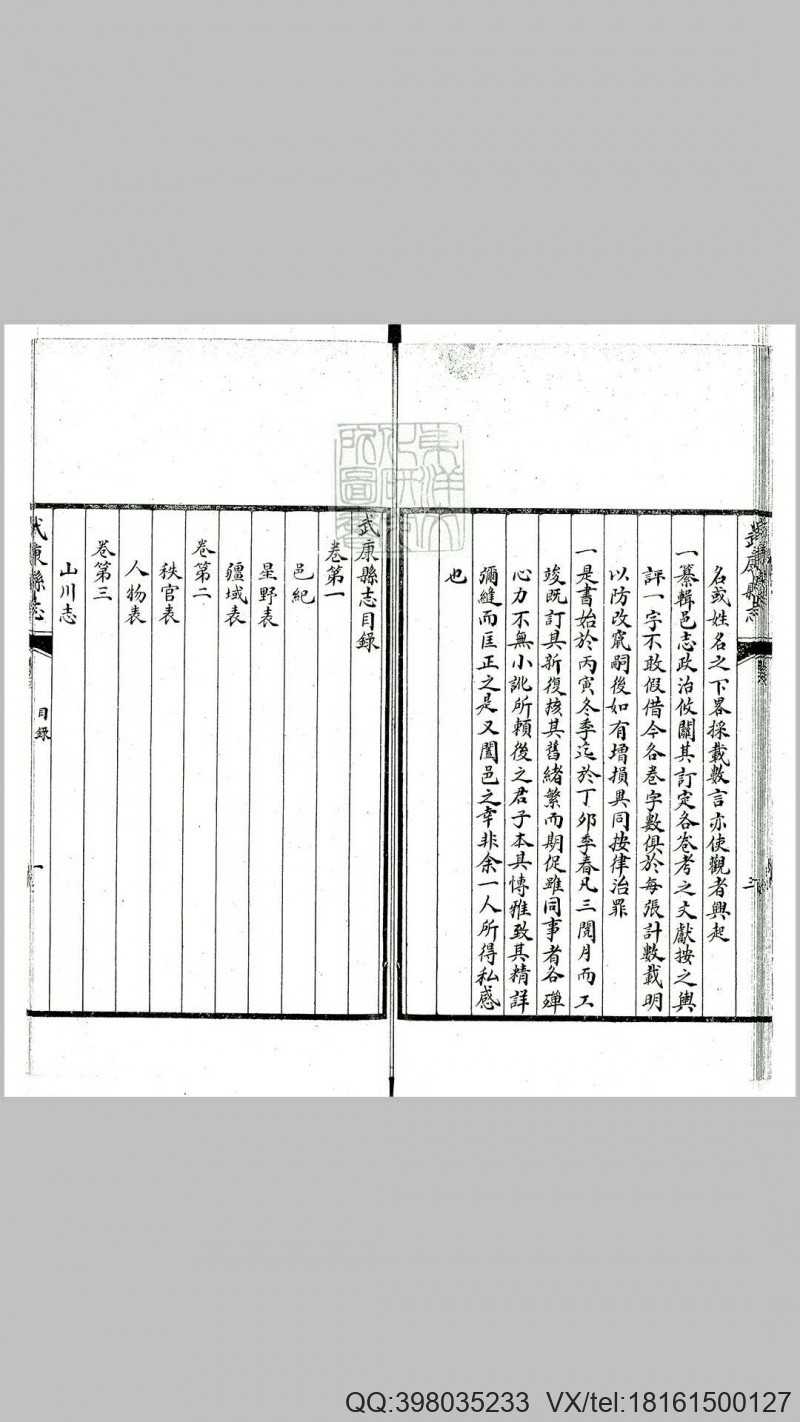 名或姓名之下畧採載數言亦使觀者興起
一纂輯邑志政治攸關其訂定各卷考之文獻按之輿
評一字不敢假借今各卷字數俱於每張計數載明
以防改竄嗣後如有增損異同按律治罪
一是書始於丙寅冬季迄於丁卯季春凡三閱月而工
竣既訂其新復核其舊緒繁而期促雖同事者各殫
心力不無小訛所賴後之君子本其博雅致其精詳
彌縫而匡正之是又闔邑之幸非余一人所得私感
也
武康縣志目錄
卷第一
邑紀
星野表
疆域表
卷第二
秩官表
人物表
卷第三
山川志
武康縣志
目錄
一
QQ:398035233 VX/tel:18161500127